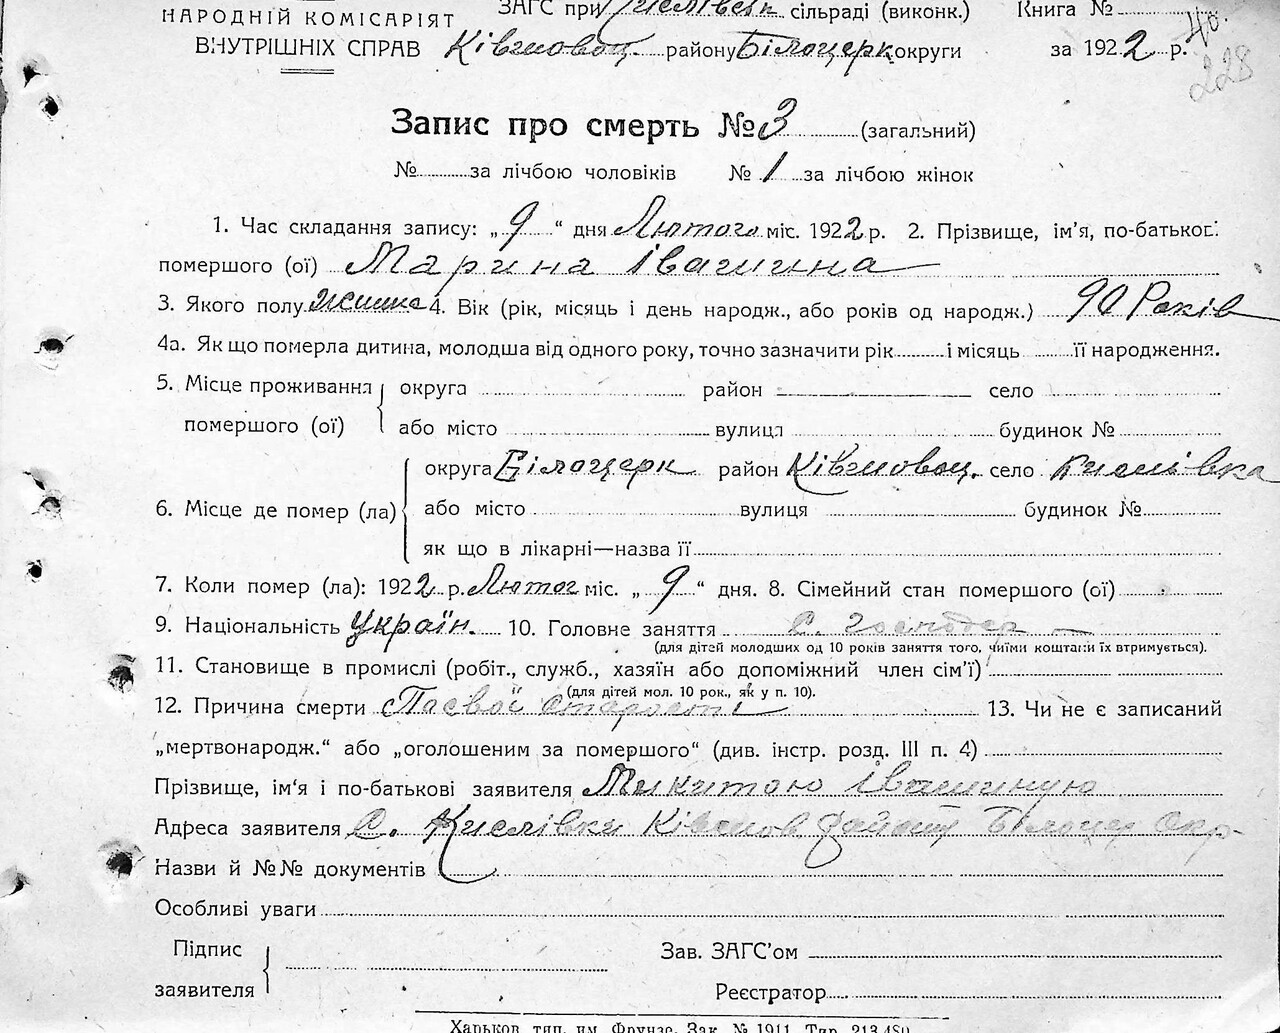 НАРОДНІЙ КОМІСАРІЯТ ЗАГС при Кислівськ сільраді (виконк.) Книга №
ВНУТРІШНІХ СПРАВ Ківшовац. району Білоцерк округи за 1922 р. 40.
228
Запис про смерть № 3 (загальний)
№ за лічбою чоловіків № 1 за лічбою жінок
1. Час складання запису: „ 9 “ дня Лютого міс. 1922 р. 2. Прізвище, ім'я, по-батькові
помершого (ої) Марина Івашина
3. Якого полу 4. Вік (рік, місяць і день народж., або років од народж.) 90 Років
4а. Як що померла дитина, молодша від одного року, точно зазначити рік і місяць її народження.
5. Місце проживання округа район село
помершого (ої) або місто вулиця будинок №
округа Білоцерк район Ківшовац. село Кислівка
6. Місце де помер (ла) або місто вулиця будинок №
як що в лікарні—назва її
7. Коли помер (ла): 1922 р. Лютог міс. „ 9 “ дня. 8. Сімейний стан помершого (ої)
9. Національність Україн. 10. Головне заняття С. господар
(для дітей молодших од 10 років заняття того, чиїми коштами їх втримується).
11. Становище в промислі (робіт., служб., хазяїн або допоміжний член сім'ї)
(для дітей мол. 10 рок., як у п. 10).
12. Причина смерти старості 13. Чи не є записаний
„мертвонародж.“ або „оголошеним за помершого“ (див. інстр. розд. III п. 4)
Прізвище, ім'я і по-батькові заявителя Микитою Івашиною
Адреса заявителя С. Кислівки Ківшов району Білоцер окр
Назви й №№ документів
Особливі уваги
Підпис Зав. ЗАГС'ом
заявителя Реєстратор
Харьков тип. им. Фрунзе. Зак. № 1911. Тир. 213.480